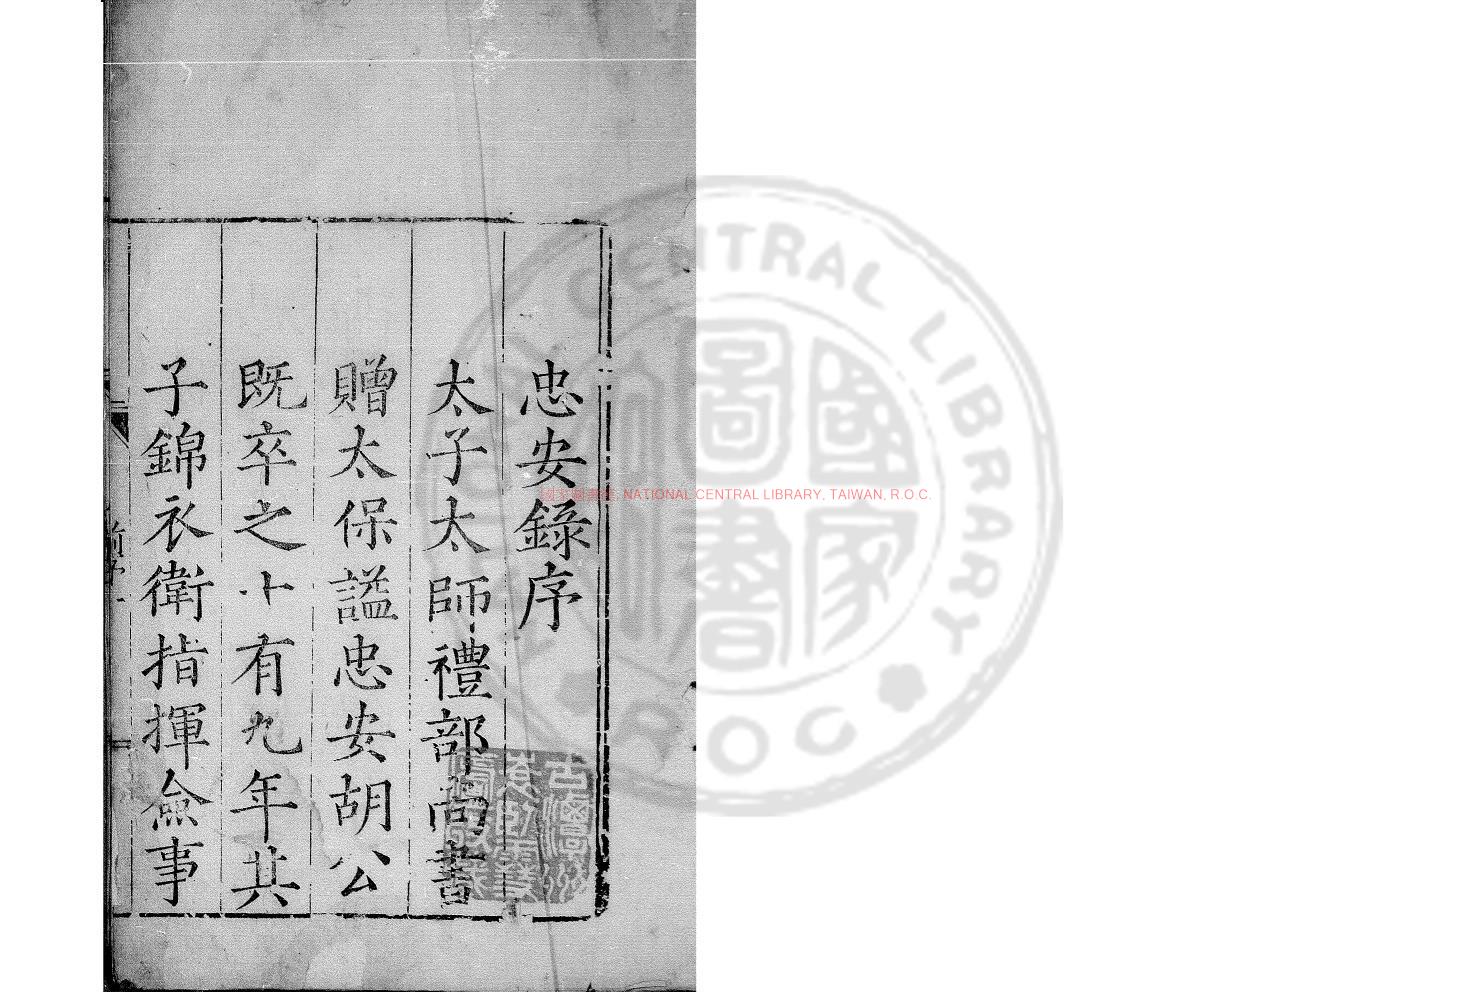 忠安錄序
太子太師禮部尚書
贈太保謚忠安胡公
既卒之十有九年其
子錦衣衛指揮僉事
國家圖書館, NATIONAL CENTRAL LIBRARY, TAIWAN, R.O.C.
CENTRAL LIBRARY
ROC
國家
圖書